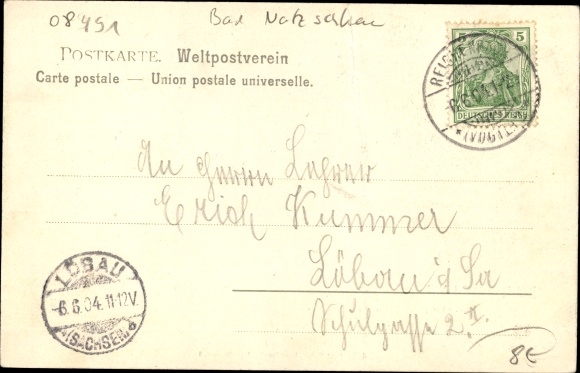 08491
Bad Netzschkau
POSTKARTE. Weltpostverein
Carte postale — Union postale universelle.
5
DEUTSCHES REICH
REICHENBACH
6.6.04.
(VOGTL.)
An Herrn Lehrer
Erich Kummer
Löbau i/Sa
Schulgasse 2. II.
LÖBAU
-6.6.04.11-12V.
(SACHSEN) a
8€